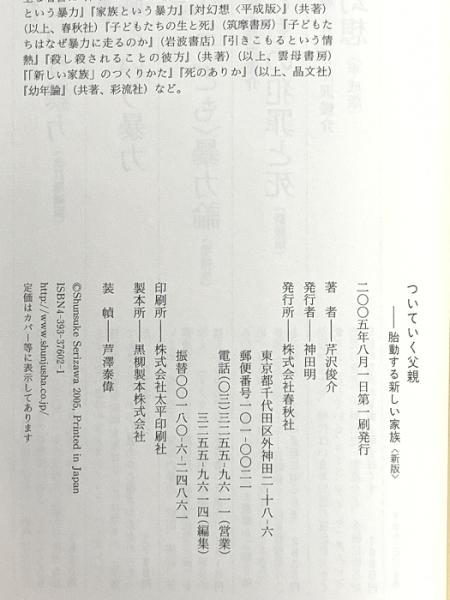 という暴力』『家族という暴力』『対幻想〈平成版〉』（共著）
（以上、春秋社）『子どもたちの生と死』（筑摩書房）『子どもた
ちはなぜ暴力に走るのか』（岩波書店）『引きこもるという情
熱』『殺し殺されることの彼方』（共著）（以上、雲母書房）
『「新しい家族」のつくりかた』『死のありか』（以上、晶文社）
『幼年論』（共著、彩流社）など。
ついていく父親
――胎動する新しい家族〈新版〉
二〇〇五年八月一日第一刷発行
著　者――芹沢俊介
発行者――神田明
発行所――株式会社春秋社
東京都千代田区外神田二-十八-六
郵便番号一〇一-〇〇二一
電話（〇三）三二五五-九六一一（営業）
三二五五-九六一四（編集）
振替〇〇一八〇-六-二四八六一
印刷所――株式会社太平印刷社
製本所――黒柳製本株式会社
装　幀――芦澤泰偉
©Shunsuke Serizawa 2005, Printed in Japan
ISBN4-393-37602-1
http://www.shunjusha.co.jp/
定価はカバー等に表示してあります